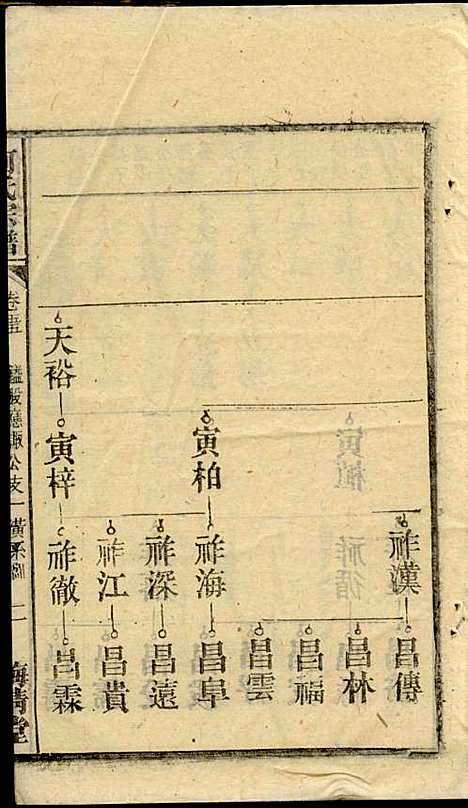 祚漢
昌傳
昌林
昌福
昌雲
寅柏
祚海
昌阜
祚深
昌遠
祚江
昌貴
天裕
寅梓
祚徹
昌霖
氏宗譜
卷五
公支
橫系圖
二